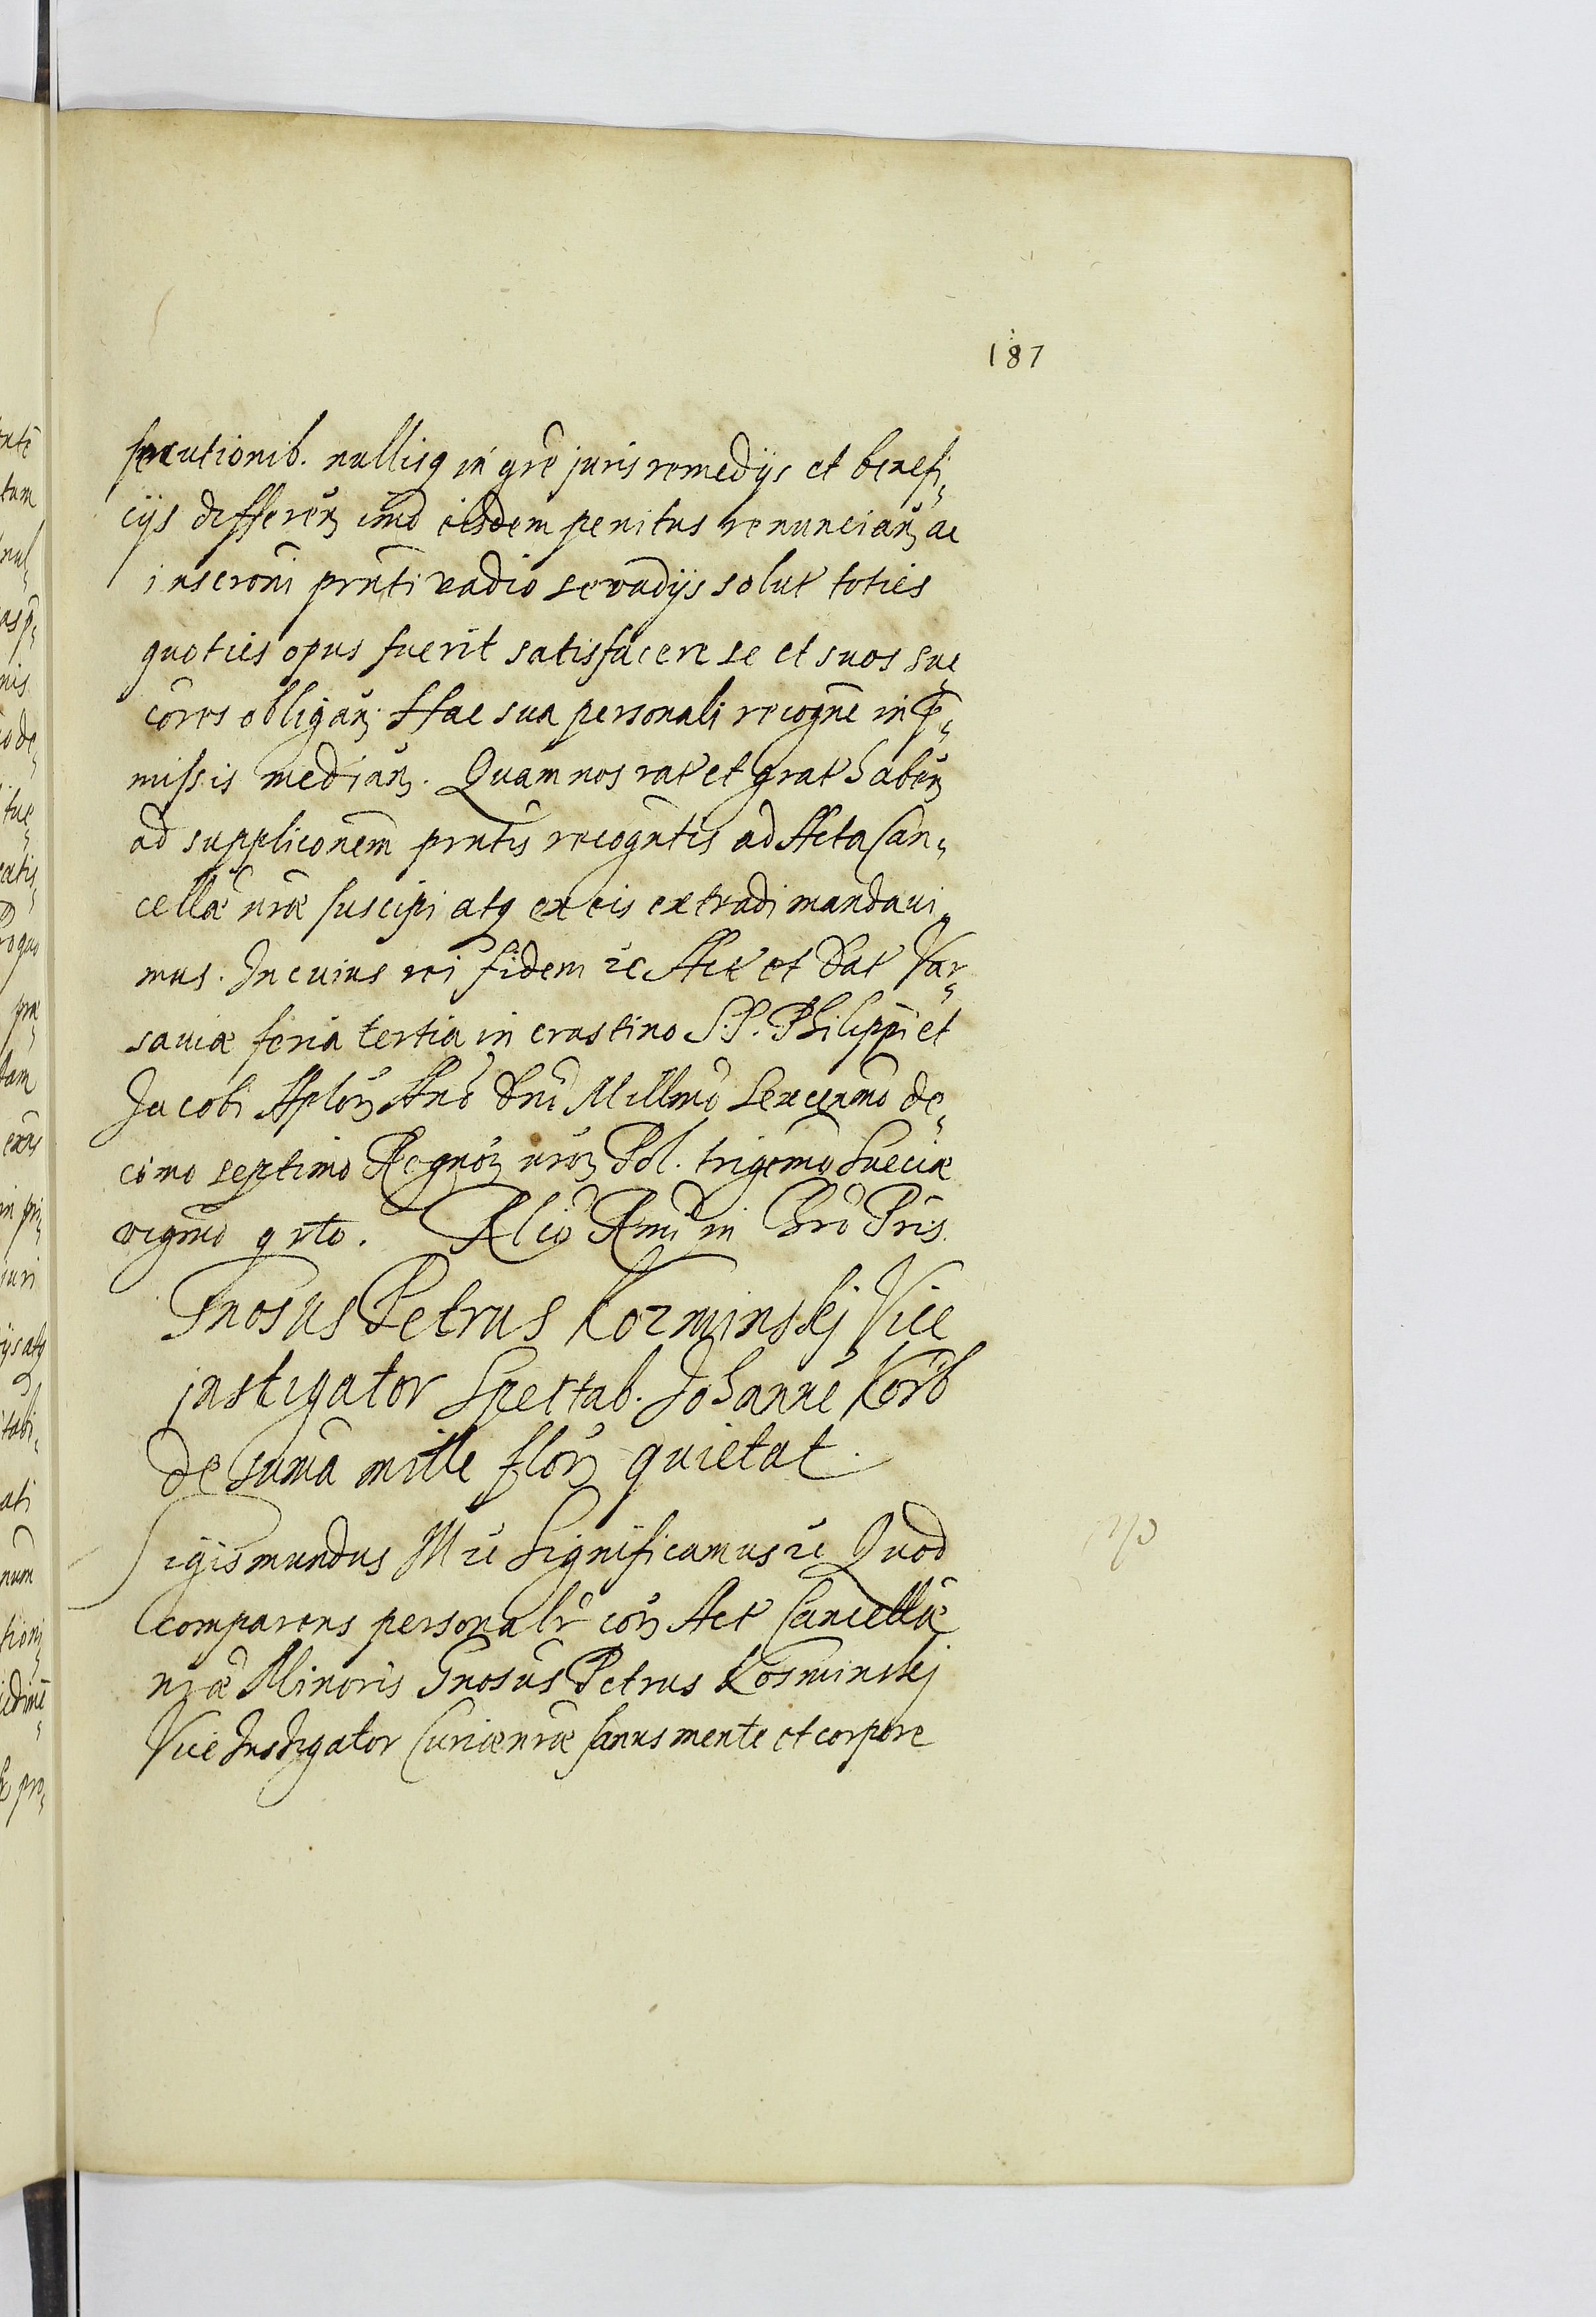 187
secutionib. nullisq in gre juris remedijs et benefi„
cijs differen imo eisdem penitus renuncian ac
inscroni prnti vadio se vadijs solut toties
quoties opus fuerit satisfacere se et suos suc„
cores obligan. Hac sua personali recogne in p„
missis median. Quam nos rat et grat haben
ad suppliconem prntis recogntis ad Acta Can„
cellæ nræ suscipi atq ex eis extradi mandaui„
mus. In cuius rei fidem etc Act et Dat Var„
sauiæ feria tertia in crastino S.P. Philippi et
Jacobi Aplor Ano Dni Millmo Sexcenmo de„
cimo septimo Regnor nror Pol. trigemo Sueciæ
vigmo qrto. Rlio Rmi in Chro Pris.
Gnosus Petrus Kozminskj Vice
jnstigator Spectab. Johanne Korb
de suma mille flor quietat.
Sigismundus III etc Significamus etc Quod
comparens personalr cor Act Cancellæ
nræ Minoris Gnosus Petrus Kosminskj
Vice Instigator Curiæ nræ sanus mente et corpore